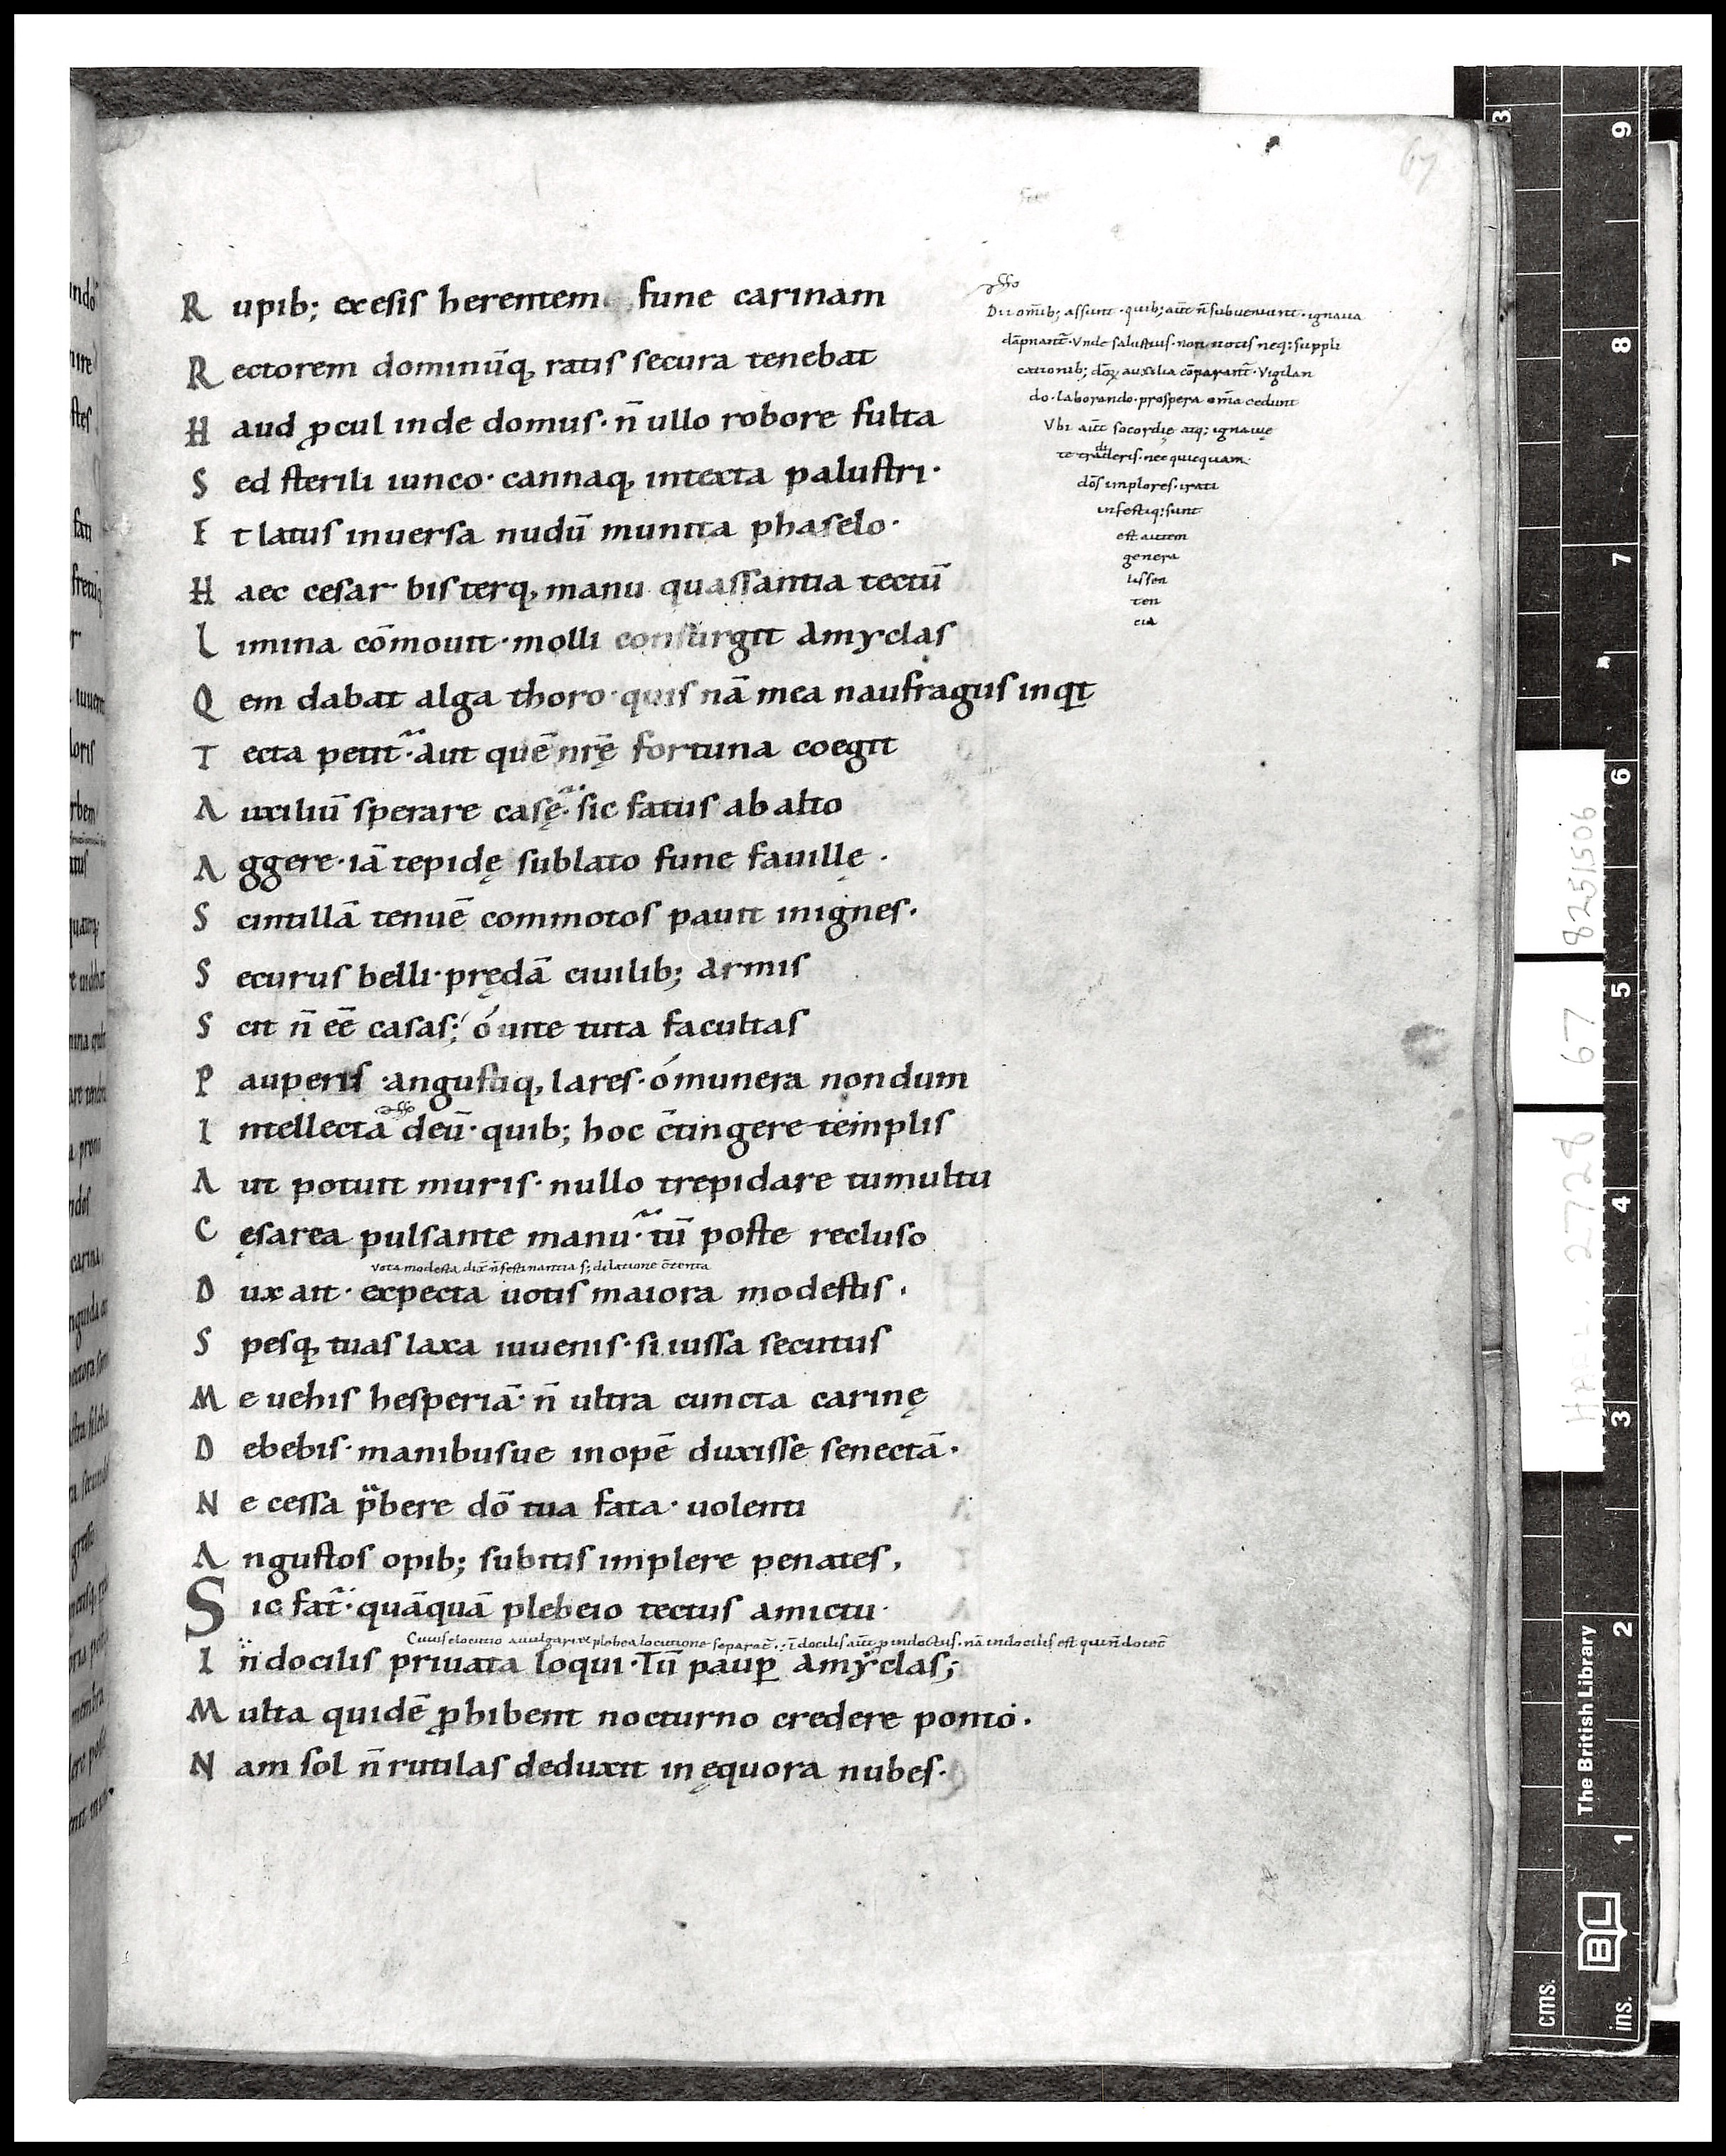 R upib; exesis herentem fune carinam
R ectorem dominūq, ratis secura tenebat
H aud ꝓcul inde domus· n̄ ullo robore fulta
S ed sterili iunco· cannaq, intexta palustri·
E t latus inuersa nudū munita phaselo·
H aec cesar bis terq, manu quassantia tectū
L imina cōmouit· molli consurgit amyclas
Q em dabat alga thoro· quis nā mea naufragus inqt
T ecta petit· aut quē nr̄ę fortuna coegit
A uxiliū sperare casę· sic fatus ab alto
A ggere· iā tepidę sublato fune fauillę·
S cintillā tenuē commotos pauit in ignes·
S ecurus belli· prędā ciuilib; armis
S cit n̄ ēē casas; ó uite tuta facultas
P auperis angustiq, lares· ó munera nondum
I ntellecta deū· quib; hoc c̄tingere templis
A ut potuit muris· nullo trepidare tumultu
C ęsarea pulsante manu· tū poste recluso
vota modesta dix̄ n̄ festinantia s; dilatione c̄tenta
D ux ait· expecta uotis maiora modestis·
S pesq, tuas laxa iuuenis· si iussa secutus
M e uehis hesperiā· n̄ ultra cuncta carinę
D ebebis· manibusue inopē duxisse senectā·
N e cessa p̄bere dō tua fata· uolenti
A ngustos opib; subitis implere penates,
S ic fat̄· quāquā plebeio tectus amictu·
Cuius elocutio a uulgari et plebea locutione separat̄
I n docilis priuata loqui· Tū paup̱ amyclas;
M ulta quidē ꝓhibent nocturno credere ponto·
N am sol n̄ rutilas deduxit in ęquora nubes·
Dii om̄ib; assunt· quib; aūt n̄ subueniunt· ignauia
dāpnant̄· Vnde salustius· non uotis neq; suppli
cationib; dōꝝ auxilia cōparant̄· Vigilan
do· laborando· prospera om̄a cedunt
Vbi aūt socordię atq; ignauię
te tradideris· nec quicquam
dōs implores· irati
infestiq; sunt
est autem
genera
lis sen
ten
cia
67
82251506
67
HAR 2728
The British Library
BL
cms.
ins.
1
2
3
4
5
6
7
8
9
3